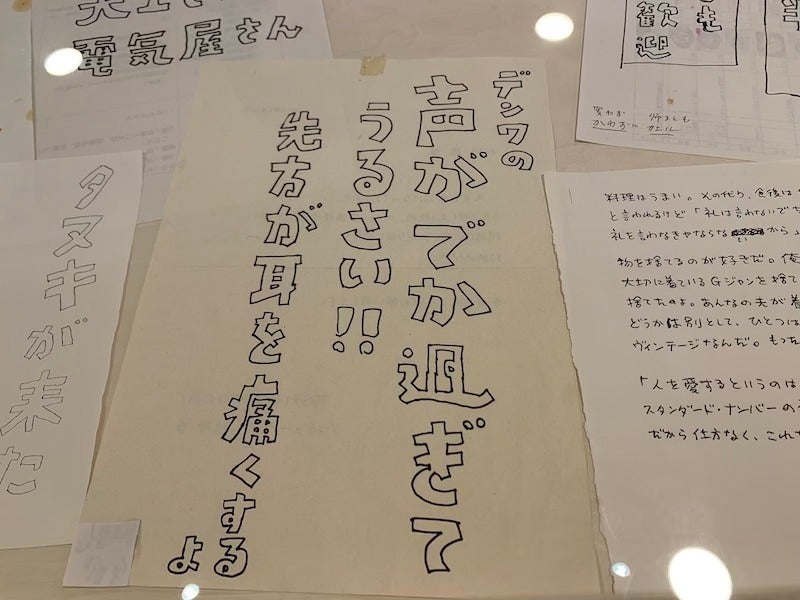 電気屋さん
歓迎
デンワの
声がでか過ぎて
うるさい!!
先方が耳を痛くする
よ
タヌキが来た
料理はうまい。その代り、食後は
と言われるけど「礼は言わないで
礼を言わなきゃならない から
物を捨てるのが好きだ。俺
大切に着ているGジャンを捨て
捨てたのよ。あんなの夫が着
どうかは別として、ひとつは
ヴィンテージなんだ。もった
「人を愛するというのは
スタンダード・ナンバーの
だから仕方なく、これ